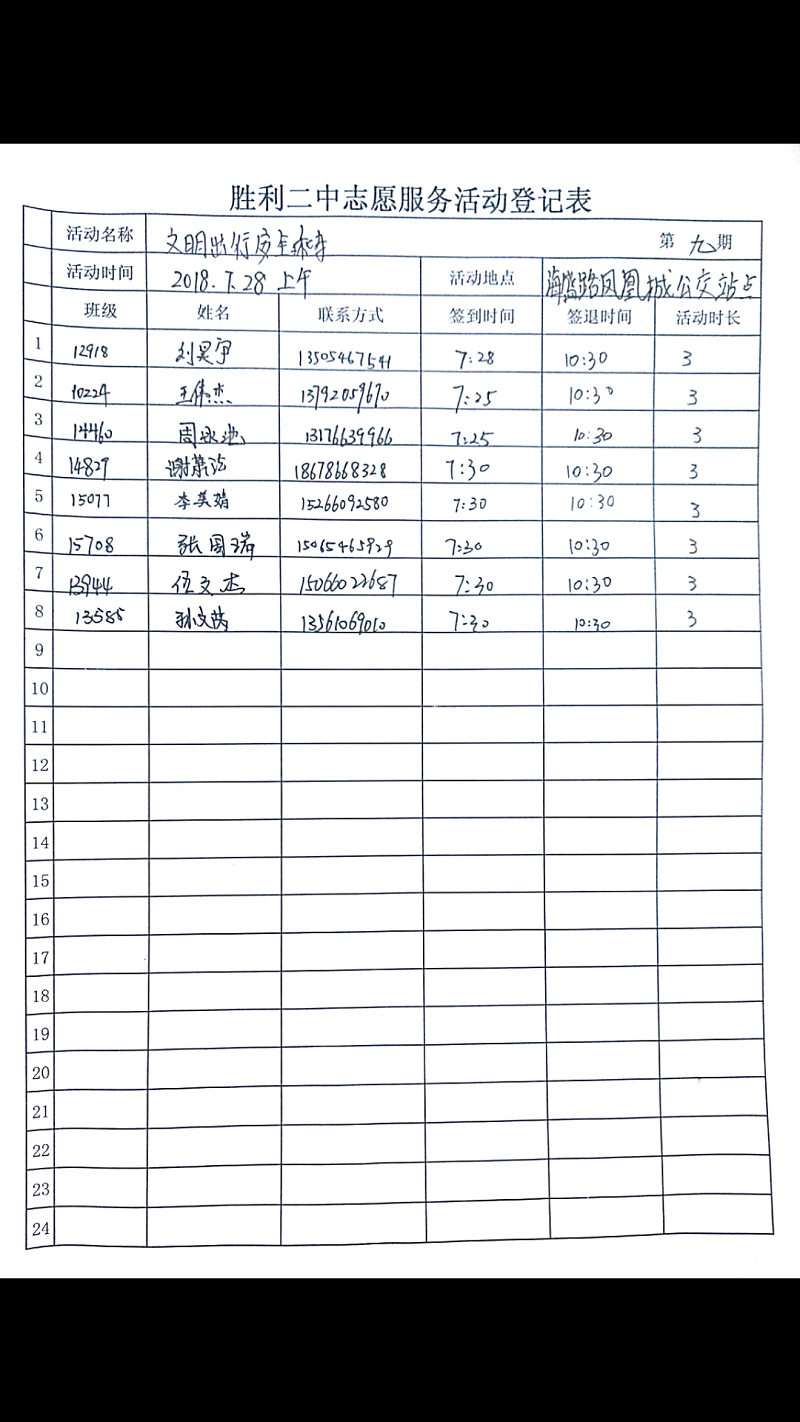 胜利二中志愿服务活动登记表
活动名称 文明出行 第九期
活动时间 2018.7.28 上午 活动地点 海盛路凤凰城公交站点
班级 姓名 联系方式 签到时间 签退时间 活动时长
1 12918 刘昊宇 13505467541 7:28 10:30 3
2 10224 王伟杰 13792059670 7:25 10:30 3
3 14460 周 13176639966 7:25 10:30 3
4 14829 谢 18678668328 7:30 10:30 3
5 15077 李美娟 15266092580 7:30 10:30 3
6 15708 张国瑞 15065465929 7:30 10:30 3
7 13944 伍文杰 15066022687 7:30 10:30 3
8 13585 孙文茜 13561069010 7:30 10:30 3
9
10
11
12
13
14
15
16
17
18
19
20
21
22
23
24